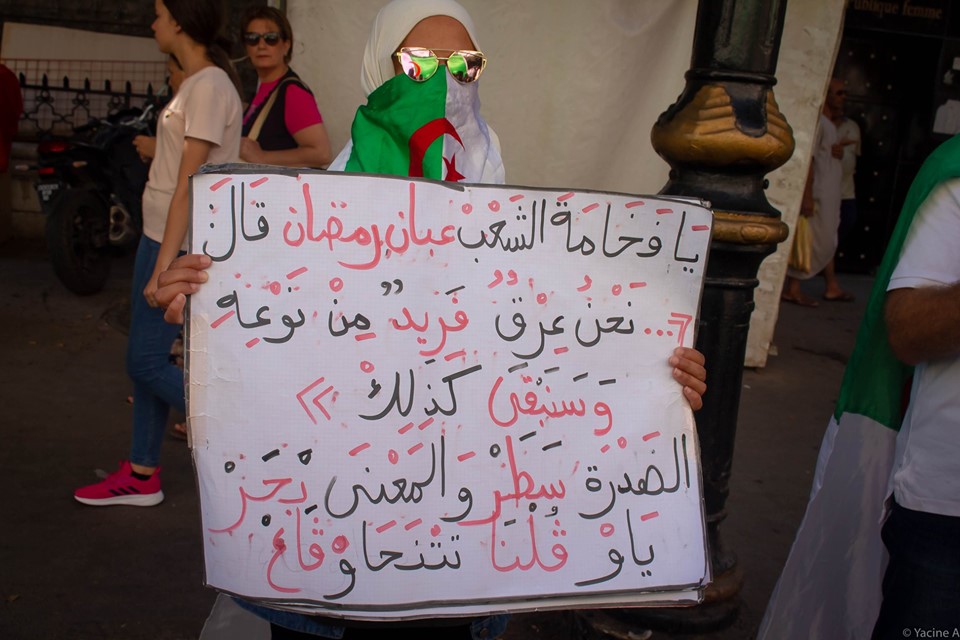 يَا فَخَامَةَ الشَّعْبْ عبان رمضان قَالَ
«... نَحْنُ عِرْقٌ فَرِيدٌ مِنْ نَوْعِهِ
وَسَنَبْقَى كَذَلِكْ »
الهَدْرَة سْطَرْ وَالمَعْنَى بْحَرْ
يَاوْ قُلْنَا تتنَحَاوْ ڨَاعْ
publique femme
© Yacine A